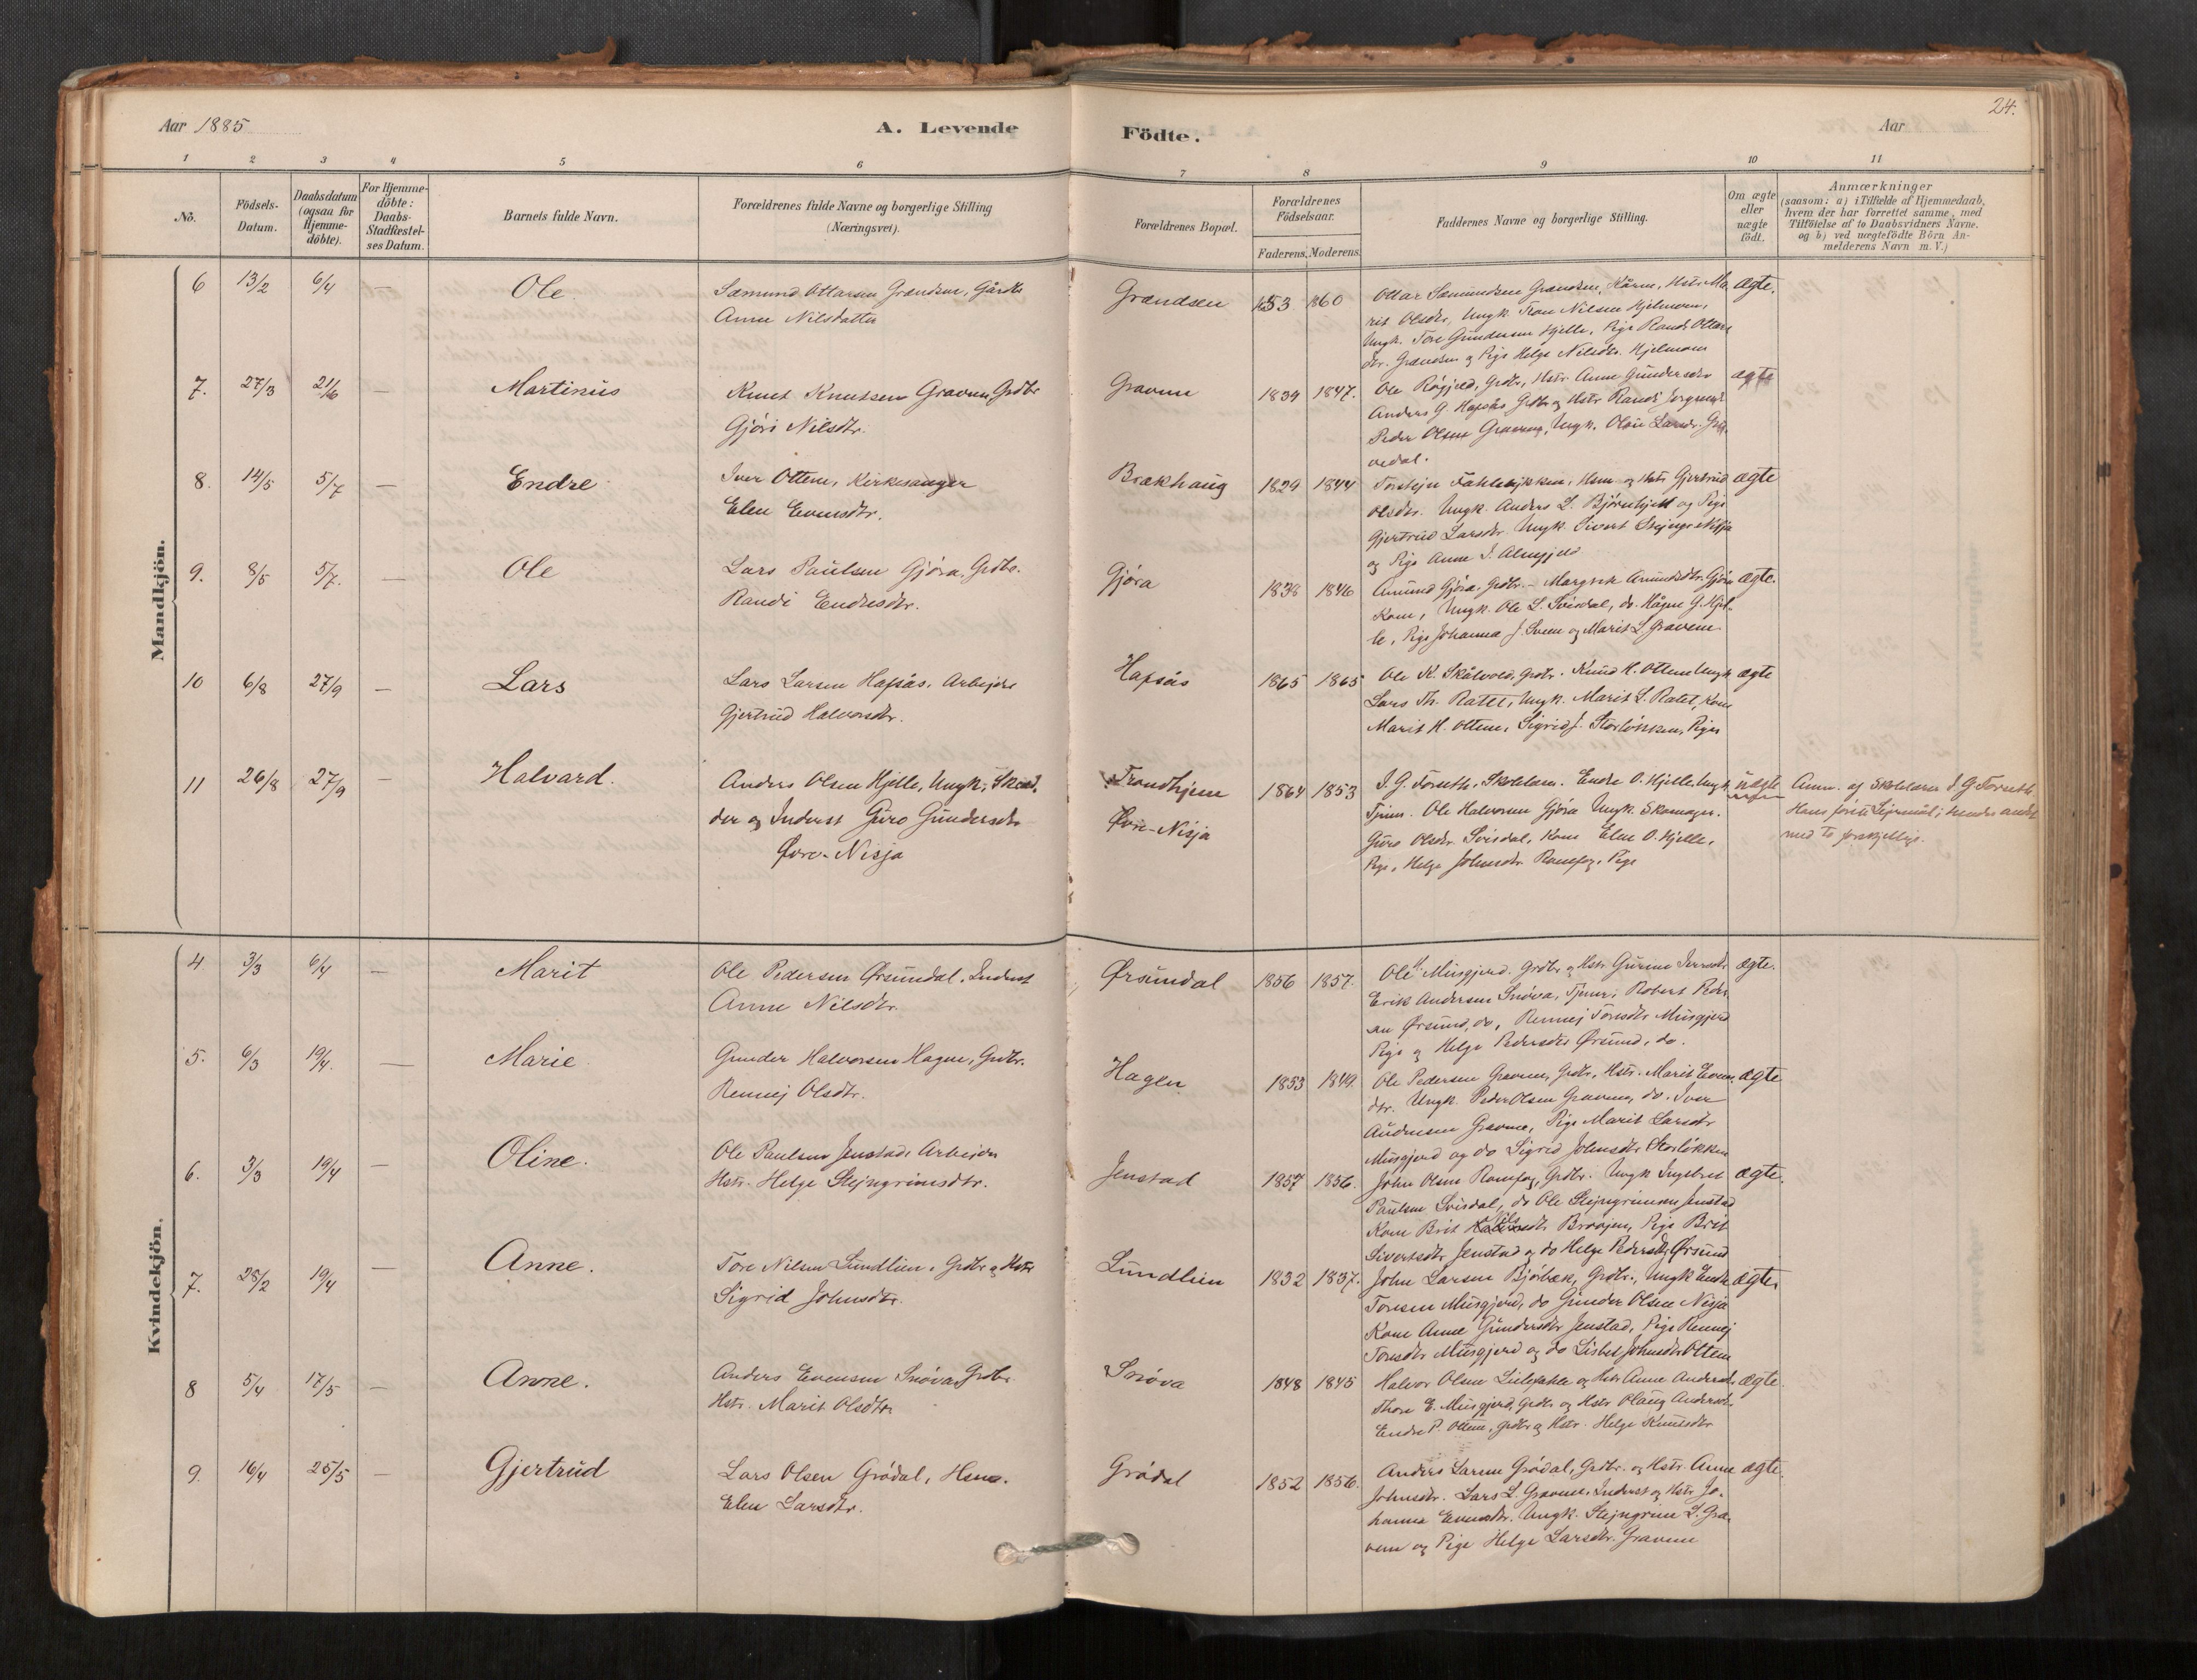 24.
Aar 1885
A. Levende
Födte.
Aar
1 2 3 4 5 6 7 8 9 10 11
No.
Födsels-
Datum.
Daabsdatum
(ogsaa for
Hjemme-
döbte).
For Hjemme-
döbte:
Daabs-
Stadfæstel-
ses Datum.
Barnets fulde Navn.
Forældrenes fulde Navne og borgerlige Stilling
(Næringsvei).
Forældrenes Bopæl.
Forældrenes
Födselsaar.
Faderens. Moderens.
Faddernes Navne og borgerlige Stilling.
Om ægte
eller
uægte
födt.
Anmærkninger
(saasom: a) i Tilfælde af Hjemmedaab,
hvem der har forrettet samme, med
Tilföielse af to Daabsvidners Navne.
og b) ved uægtefödte Börn An-
melderens Navn m. V.)
Mandkjön.
6 13/2 6/4 — Ole
Sæmund Ottarsen Grændsen, Gårdbr
Anne Nilsdatter
Grændsen 1853 1860
Ottar Sæmundsen Grændsen, Kårm, Hstr. Ma-
rit Olsdtr, Ungk. Nilsen Hjelmoen,
Ungk. Tore Gundersen Hjelle, Pige Randi Ottars
dtr. Grændsen og Pige Helge Nilsdtr. Hjelmoen
ægte.
7. 27/3 21/6 — Martinus
Knut Knutsen Gravem, Grdbr
Gjöri Nilsdtr.
Gravem 1834 1847.
Ole Grdbr, Hstr. Anne Gundersdtr
Anders G. Hafsås Grdbr og Hstr Randi
Peder Olsen Gravem, Ungk. Larsdr. Grö-
vedal.
ægte
8. 14/5 5/7 — Endre
Iver Ottem, Kirkesanger
Elen Evensdtr.
Brækhaug 1829 1844
Torstejn Fahlelykken, Hsm og Hstr Gjertrud
Olsdtr. Ungk. Anders L. Björnhjell og Pige
Gjertrud Larsdtr Ungk. Sivert Stejngr. Nisja
og Pige Anne I. Almsjeld
ægte
9. 8/5 5/7. — Ole
Lars Paulsen Gjöra, Grdbr.
Randi Endresdtr.
Gjöra 1838 1846
Amund Gjöra, Grdbr. — Margrete Amundsdtr. Gjöra
Kone, Ungk. Ole L. Svisdal, do. Hågen G. Hjel-
le, Pige Johanna J. Sveen og Marit L. Gravem.
ægte.
10 6/8 27/9 — Lars
Lars Larsen Hafsås, Arbejder
Gjertrud Halvorsdtr.
Hafsås 1865 1865
Ole K. Skålvold, Grdbr. Knud H. Ottem Ungk
Lars Th. Ratel, Ungk. Marit L. Ratel, Kone
Marit H. Ottem, Sigrid J. Storlökken, Piger
ægte
11 26/8 27/9 — Halvard.
Anders Olsen Hjelle, Ungk, Skræd-
der og Inderst Guro Gundersdtr
Övre-Nisja
Trondhjem
Övre-Nisja
1864 1853
I. G. Forseth, Skolelærer. Endre O. Hjelle Ungk
Tjener. Ole Halvorsen Gjöra Ungk. Skomager.
Guro Olsdtr. Svisdal, Kone Elen O. Hjelle,
Pige, Helge Johnsdtr Romfog, Pige
uægte
Anm. af Skolelærer I. G. Forseth
Hans förste Lejermål; hendes andet
med to forskjellige.
Kvindekjön.
4 3/3 6/4 — Marit
Ole Pedersen Örsundal, Inderst
Anne Nilsdtr.
Örsundal 1856 1857.
Ole Musgjerd. Grdbr og Hstr Gurine Iversdtr
Erik Andersen Snöva, Tjener, Robert Peder-
sen Örsund, do, Rennej Toresdtr Musgjerd
Pige og Helge Pedersdtr Örsund, do.
ægte.
5. 6/3 19/4. — Marie.
Gunder Halvorsen Hagen, Grdbr.
Rennej Olsdtr.
Hagen 1853 1849.
Ole Pedersen Gravem, Grdbr, Hstr. Marit Evens-
dtr. Ungk. Peder Olsen Gravem, do. Iver
Audunsen Gravem, Pige Marit Larsdtr
Musgjerd og do Sigrid Johnsdtr Storlökken
ægte
6. 3/3 19/4 — Oline.
Ole Paulsen Jenstad, Arbejder
Hstr. Helge Stejngrimsdtr.
Jenstad 1857 1856.
John Olsen Romfog, Grdbr. Ungk Ingebret
Paulsen Svisdal, do Ole Stejngrimsen Jenstad
Kone Brit Nilsdtr. Pige Brit
Sivertsdtr Jenstad og do Helge Pedersdtr Örsund
ægte.
7. 25/2 19/4 — Anne.
Tore Nilsen Lundlien, Grdbr og Hstr
Sigrid Johnsdtr.
Lundlien 1832 1837.
John Larsen Björbæk, Grdbr., Ungk Endre
Toresen Musgjerd, do Gunder Olsen Nisja
Kone Anne Gundersdtr Jenstad, Pige Rennej
Toresdtr Musgjerd og do Lisbet Johnsdtr Ottem
ægte.
8 5/4 17/5 — Anne.
Anders Evensen Snöva, Grdbr
Hstr. Marit Olsdtr
Snöva 1848 1845
Halvor Olsen Lillefahle og Hstr Anne Andersdtr
Thore E. Musgjerd, Grdbr og Hstr Olaug Andersdtr.
Endre P. Ottem, Grdbr og Hstr. Helge Knudsdtr
ægte.
9. 16/4 25/5 — Gjertrud
Lars Olsen Grödal, Hsm.
Elen Larsdtr.
Grödal 1852 1856.
Anders Larsen Grödal, Grdbr. og Hstr. Anne
Johnsdtr. Lars L. Gravem, Inderst og Hstr Jo-
hanna Evensdtr. Ungk. Stejngrim L. Gra-
vem og Pige Helge Larsdtr. Gravem
ægte.